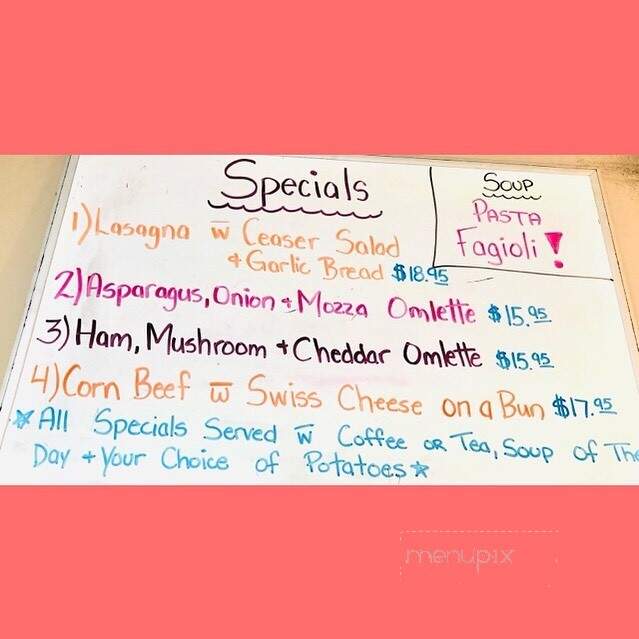 Specials
1) Lasagna w Ceaser Salad
+ Garlic Bread $18.45
2) Asparagus, Onion + Mozza Omlette $15.95
3) Ham, Mushroom + Cheddar Omlette $15.95
4) Corn Beef w Swiss Cheese on a Bun $17.95
* All Specials Served w Coffee or Tea, Soup of The
Day + Your Choice of Potatoes *
Soup
Pasta
Fagioli!
menupix